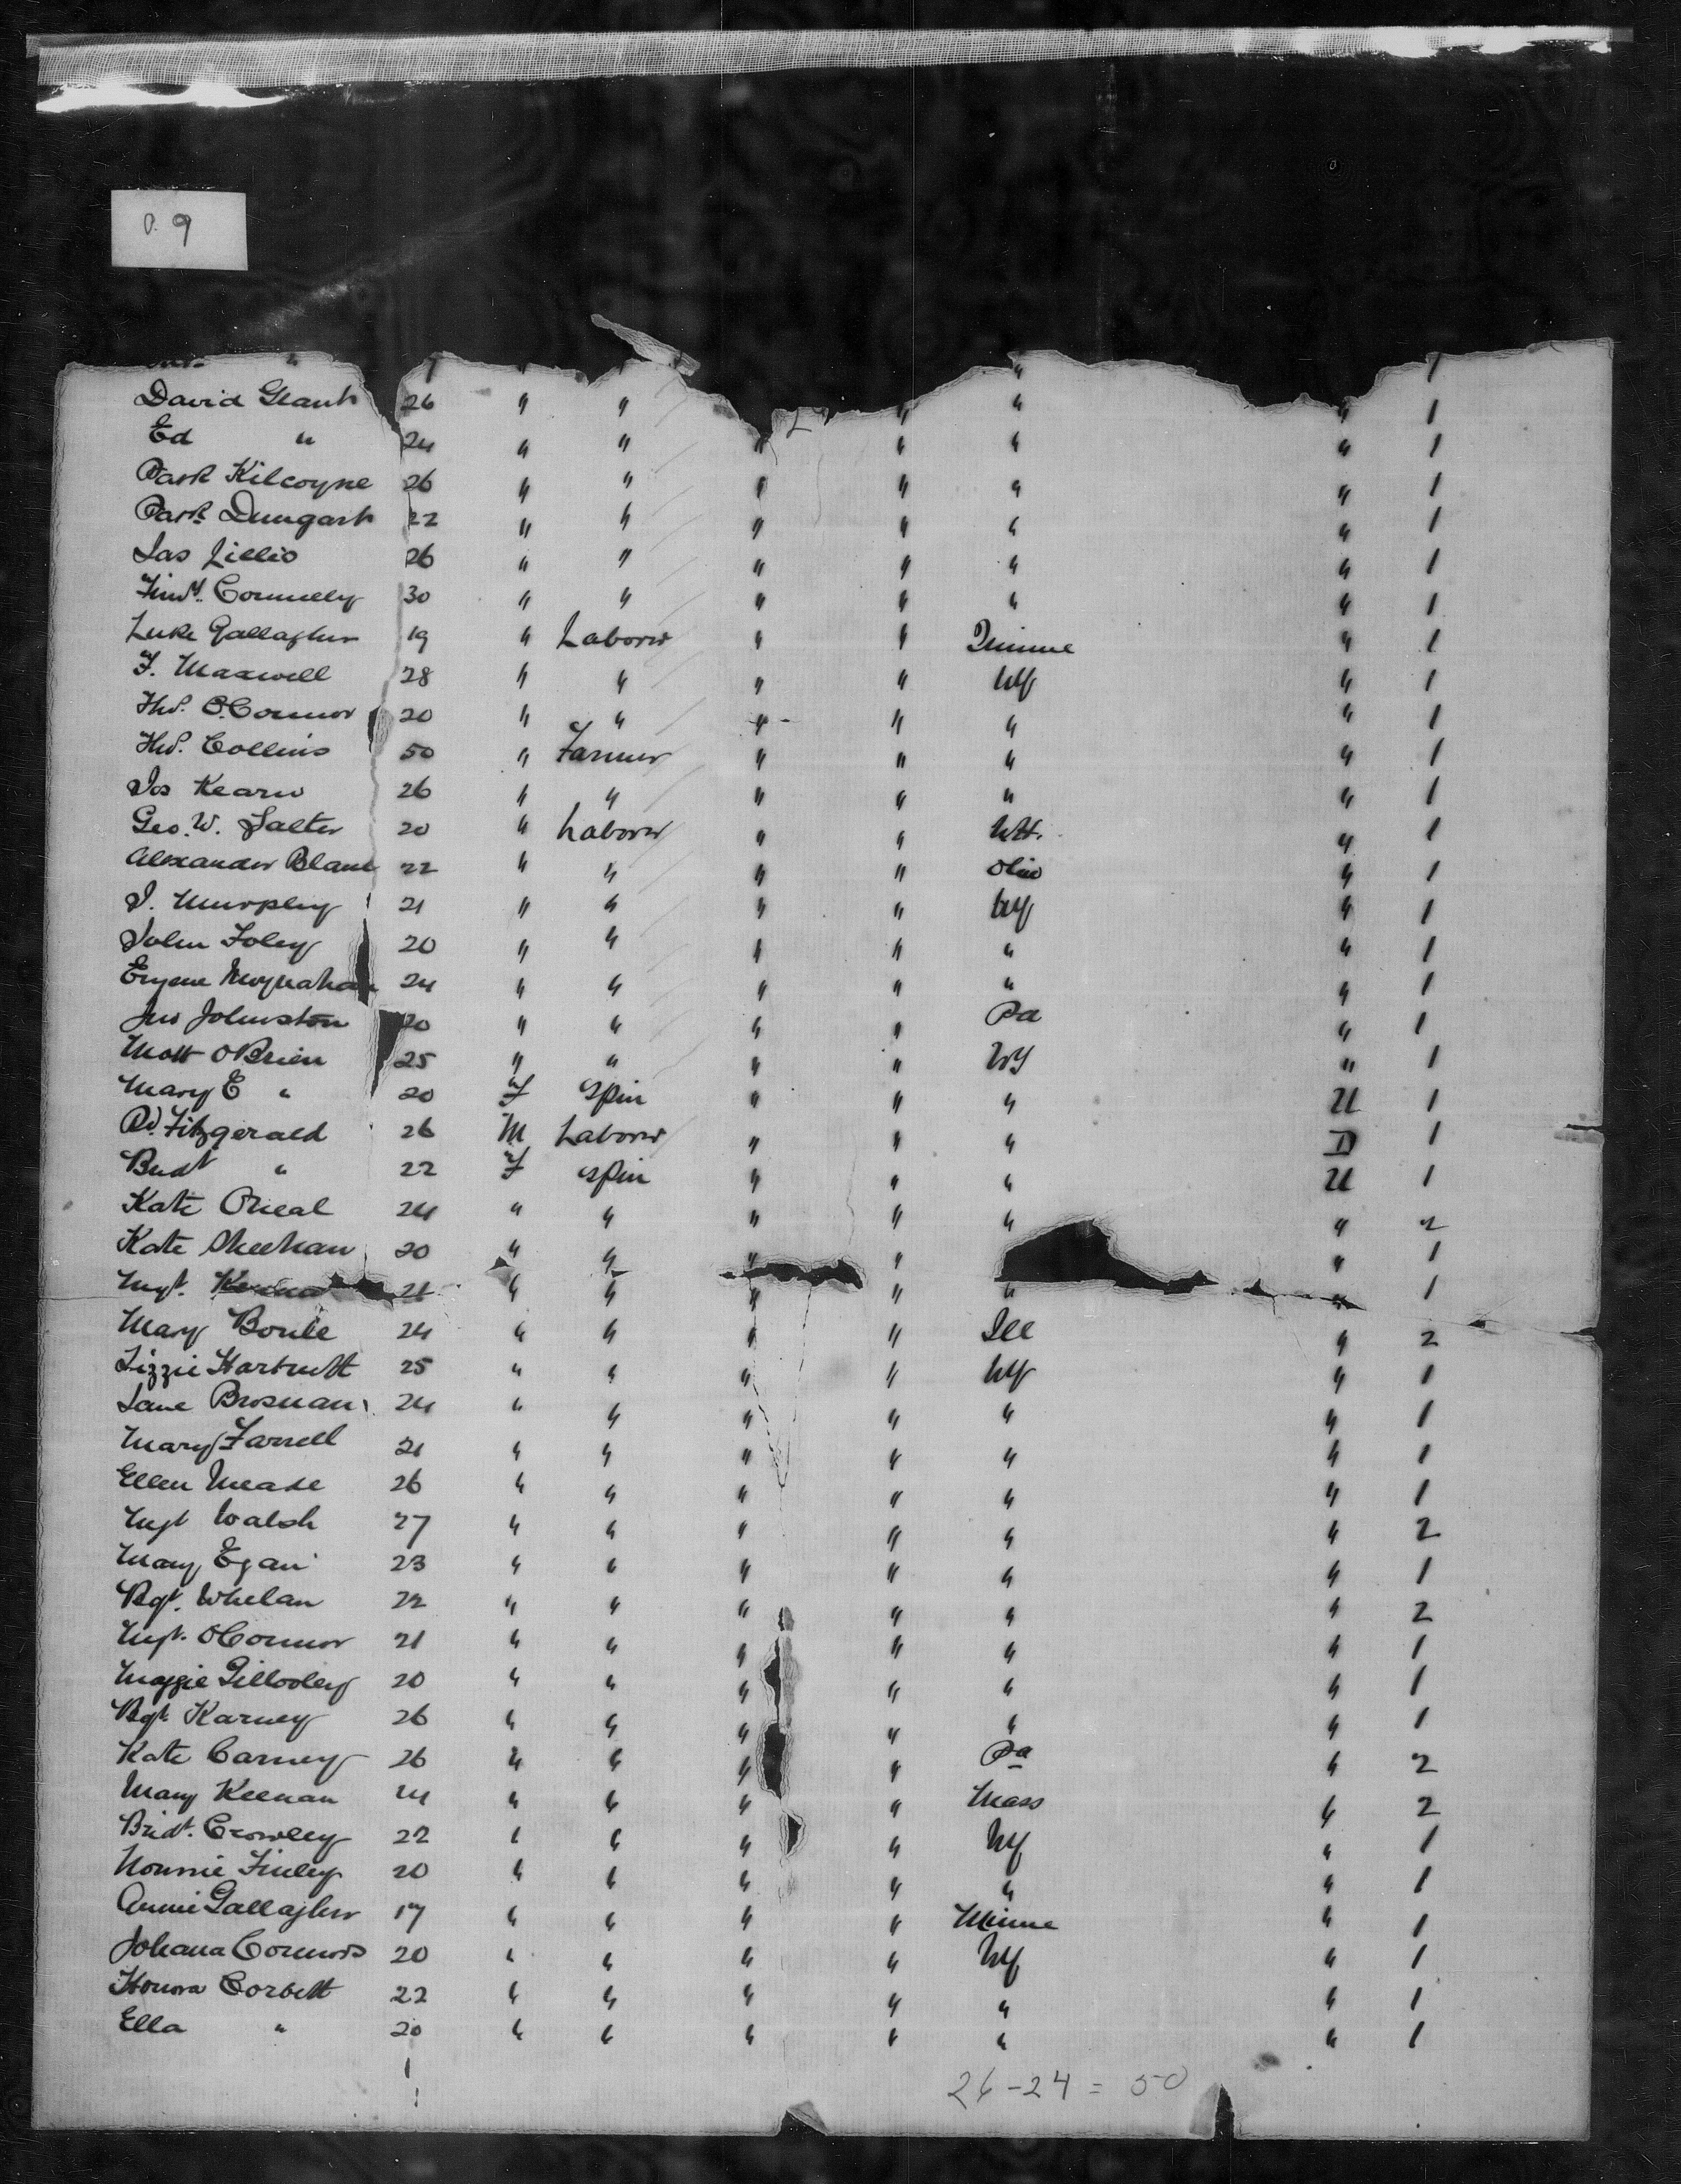 P. 9
" 1
David Grant 26 " " " " " 1
Ed " 24 " " " " " " 1
Patk Kilcoyne 26 " " " " " " 1
Patk 22 " " " " " " 1
Jas 26 " " " " " " 1
Timy. Connelly 30 " " " " " " 1
Luke Gallagher 19 " Laborer " " Minne " 1
F. Maxwell 28 " " " " NY " 1
Ths. O'Connor 20 " " " " " " 1
Ths. Collins 50 " Farmer " " " " 1
Jos 26 " " " " " " 1
Geo. W. Salter 20 " Laborer " " " 1
Alexander Blane 22 " " " " Ohio " 1
J. Murphy 21 " " " " NY " 1
John Foley 20 " " " " " " 1
Eugene Moynahan 24 " " " " " " 1
Jno Johnston 20 " " " " Pa " 1
Matt OBrien 25 " " " " NY " 1
Mary E " 20 F Spin " " " U 1
Pd. Fitzgerald 26 M Laborer " " " D 1
Bridt " 22 F Spin " " " U 1
Kate Oneal 24 " " " " " " 2
Kate Sheehan 20 " " " " " 1
Mgt. 21 " " " " " " 1
Mary 24 " " " " Ill " 2
Lizzie Hartnett 25 " " " " NY " 1
Jane Brosnan 24 " " " " " " 1
Mary Farrell 21 " " " " " " 1
Ellen Meade 26 " " " " " " 1
Mgt Walsh 27 " " " " " " 2
Mary Egan 23 " " " " " " 1
Bgt. Whelan 22 " " " " " " 2
Mgt. OConnor 21 " " " " " " 1
Maggie Gillooley 20 " " " " " " 1
Bgt. Karney 26 " " " " " " 1
Kate Carney 26 " " " " Pa " 2
Mary Keenan 24 " " " " Mass " 2
Bridt. Crowley 22 " " " " NY " 1
Nonnie Finley 20 " " " " " " 1
Annie Gallagher 17 " " " " Minne " 1
Johana Connors 20 " " " " NY " 1
Honora Corbett 22 " " " " " " 1
Ella " 20 " " " " " " 1
26-24 = 50